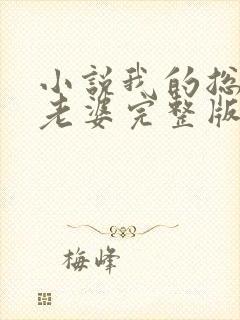 小说我的总
老婆完整版
梅峰